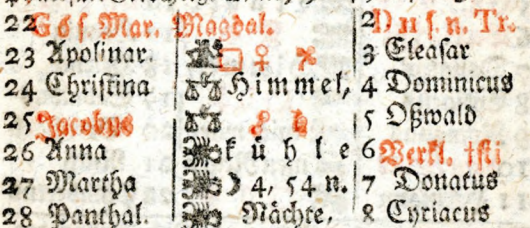 22 G 6 s. Mar. Magdal. 2 D 11 s. n. Tr.
23 Apolinar. □ ♀ 3 Eleasar
24 Christina Himmel, 4 Dominicus
25 Jacobus ♄ 5 Oßwald
26 Anna kühle 6 Verkl. †sti
27 Martha ☽ 4, 54 n. 7 Donatus
28 Panthal. Nächte, 8 Cyriacus